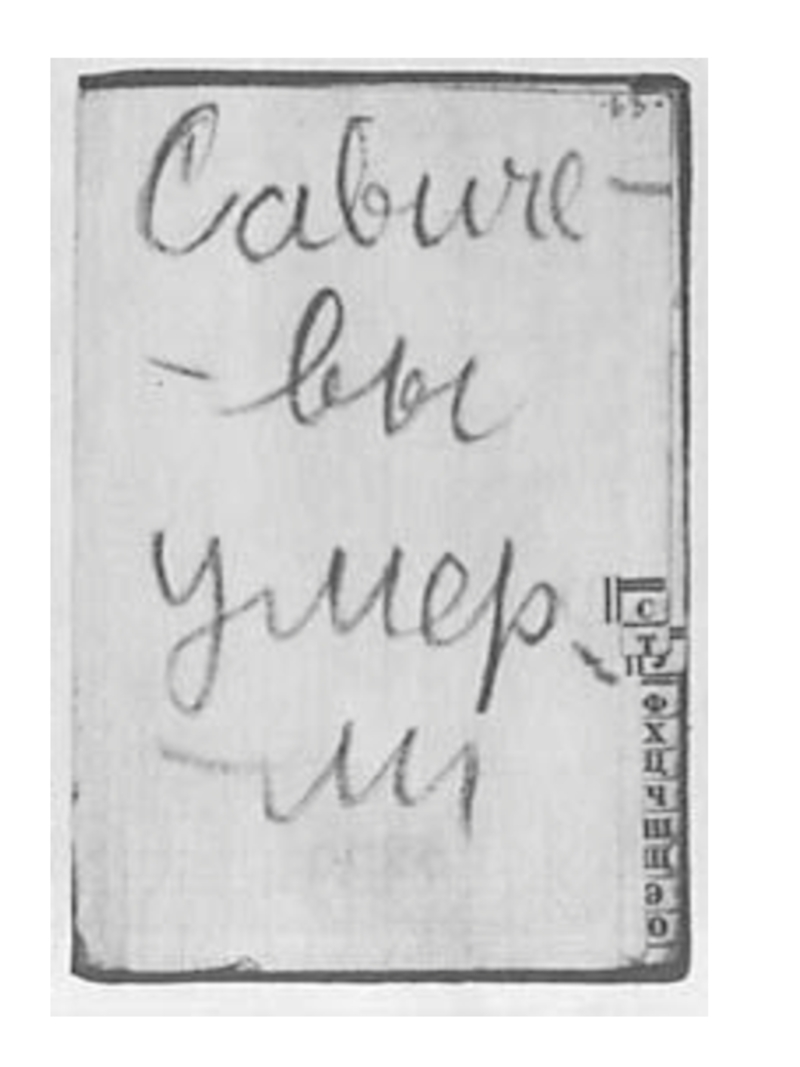 ·63·
Савиче-
-вы
умер-
-ли
С
Т
У
Ф
Х
Ц
Ч
Ш
Щ
Э